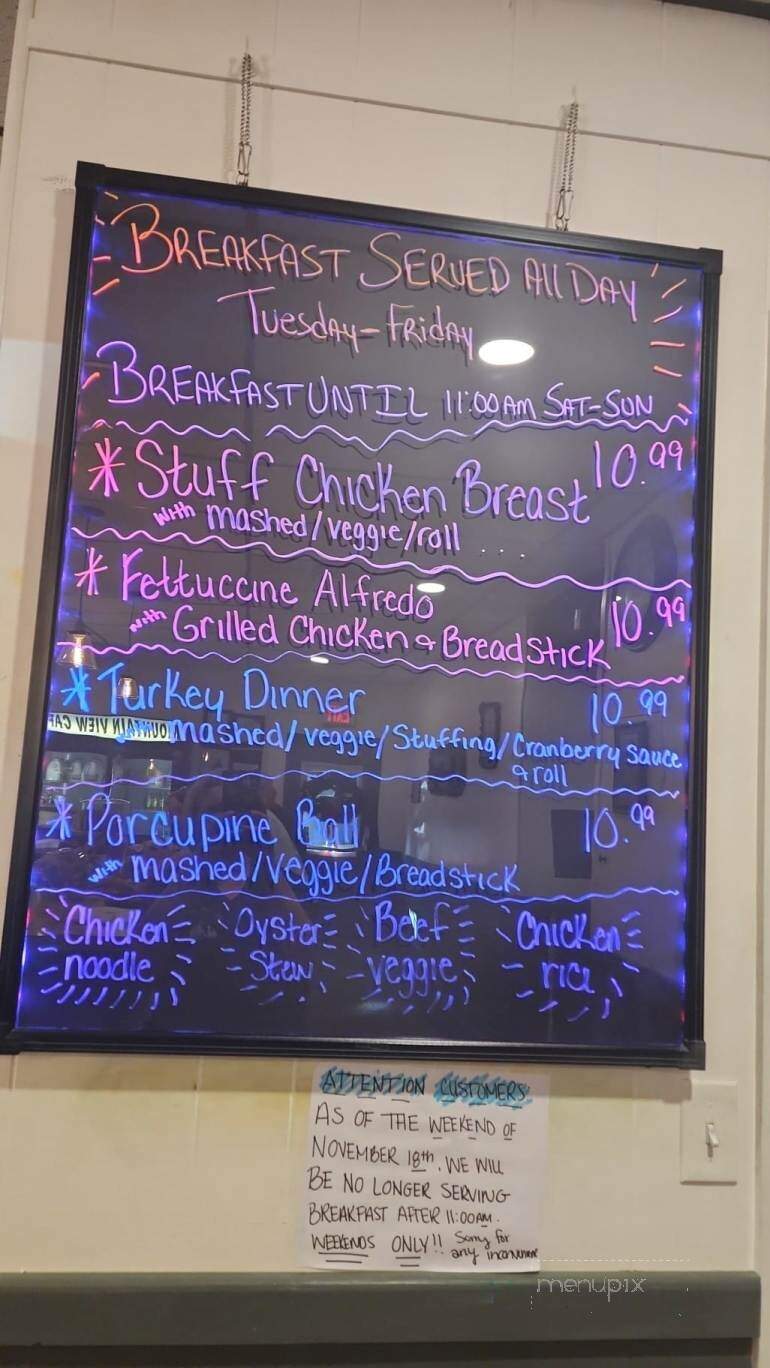 BREAKFAST SERVED All DAY
Tuesday-FRIDAY
BREAKFAST UNTIL 11:00AM SAT-SUN
* Stuff Chicken Breast 10.99
with mashed/veggie/roll ...
* Fettuccine Alfredo 10.99
with Grilled Chicken & BreadStick
* Turkey Dinner 10.99
mashed/veggie/Stuffing/Cranberry sauce
& roll
* Porcupine Ball 10.99
with mashed/Veggie/Breadstick
Chicken noodle
Oyster Stew
Beef veggie
Chicken rice
ATTENTION CUSTOMERS
AS OF THE WEEKEND OF
NOVEMBER 18th, WE WILL
BE NO LONGER SERVING
BREAKFAST AFTER 11:00AM.
WEEKENDS ONLY!! Sorry for
any inconvenience
menupix